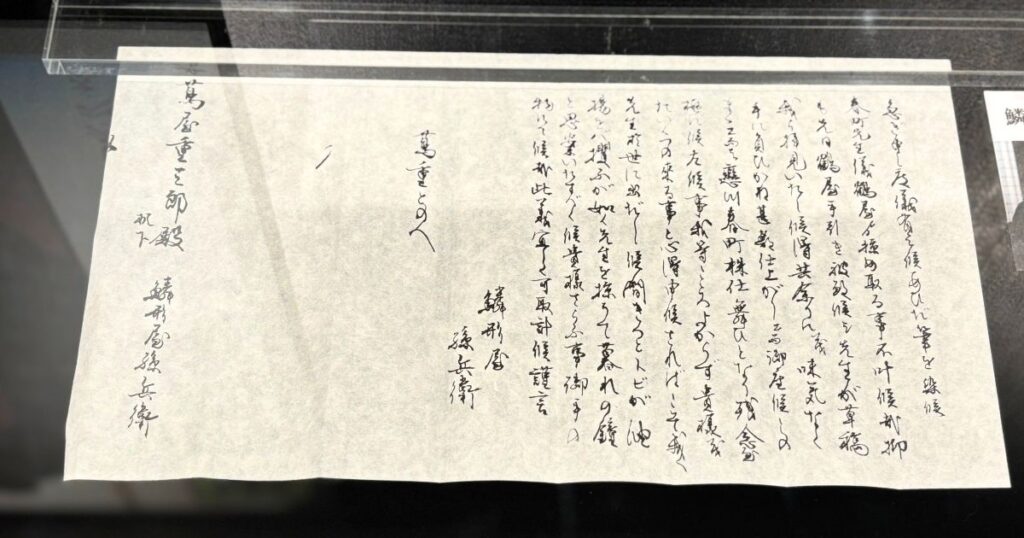 急ぎ申し度儀有之候あひだ筆を染候
春町先生儀鶴屋より掠め取る事不叶候哉抑
も先日鶴屋手引き被致候て先生が草稿
我も拝見いたし候得共余りに茂味気なく
手に負ひかね甚敷仕上がりニ而御座候
恋川春町株仕舞ひとなり残念至
極に候左候事我等こころよからず貴様茂
事と心得申候さればこそ我ら
先生於世に出だし候間きつとトビが油
揚を攫ふが如く先生を掠ふて暮れの鐘
と思案いたすべく候貴様さらふ事御手の
物にて候哉此義宜しく可取計候謹言
鱗形屋
孫兵衛
蔦重とのへ
蔦屋重三郎殿
机下
鱗形屋孫兵衛
鱗